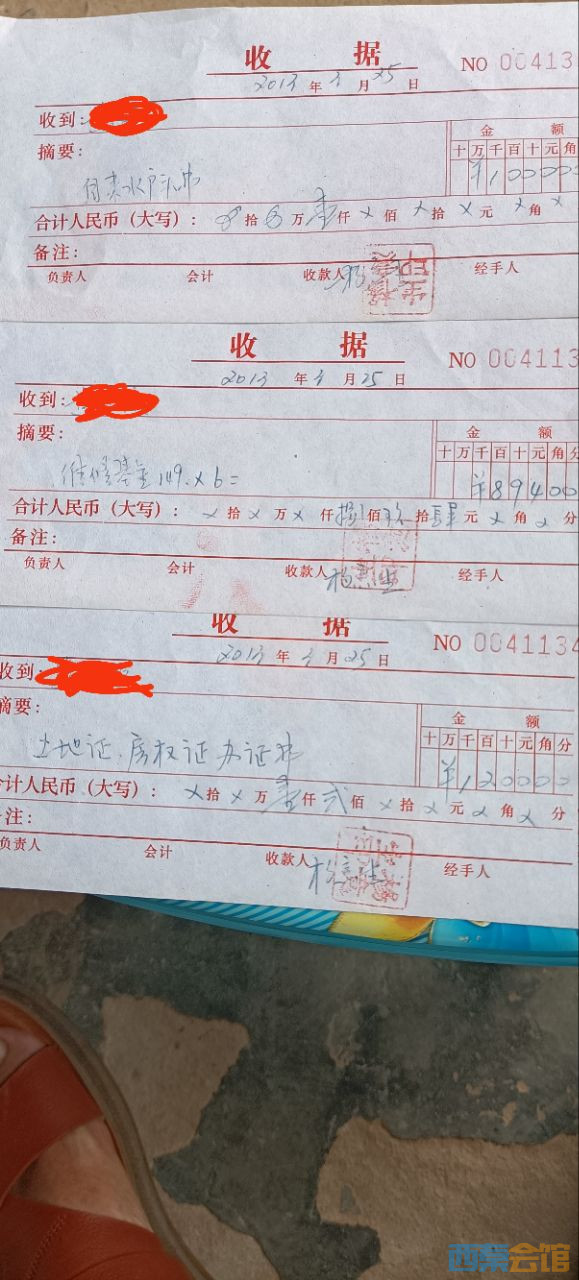 收 据
NO 004113
2013 年 3 月 25 日
收到:
摘要:
金 额
十万千百十元角
¥100000
合计人民币（大写）: 拾 万壹仟 × 佰 × 拾 × 元 × 角 ×
备注:
负责人 会计 收款人 经手人
收 据
NO 004113
2013 年 3 月 25 日
收到:
摘要:
金 额
十万千百十元角分
维修基金 149. × 6 =
¥89400
合计人民币（大写）: × 拾 × 万 × 仟捌佰玖拾肆元 × 角 × 分
备注:
负责人 会计 收款人 经手人
收 据
NO 0041134
2013 年 3 月 25 日
收到
摘要:
金 额
十万千百十元角分
土地证、房权证办证费
¥120000
计人民币（大写）: × 拾 × 万壹仟贰佰 × 拾 × 元 × 角 × 分
注:
负责人 会计 收款人 经手人
西祠会馆